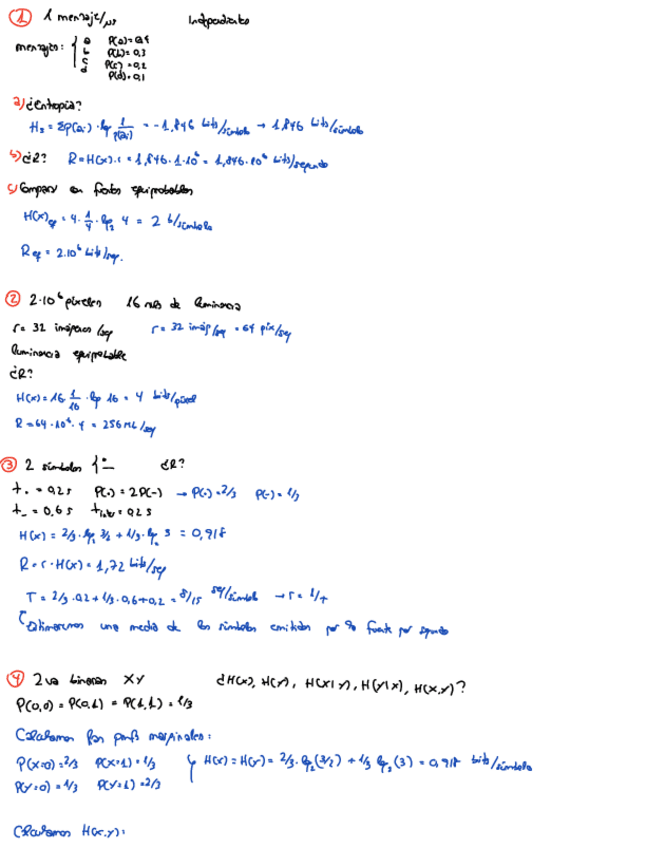 1 1 mensaje/μs Independiente
mensajes: { a P(a)=0,4
b P(b)=0,3
c P(c)=0,2
d P(d)=0,1
a) ¿Entropía?
H = Σp(ai)·log 1/p(ai) = -1,846 bits/símbolo → 1,846 bits/símbolo
b) ¿R? R=H(x)·r = 1,846·1·10⁶ = 1,846·10⁶ bits/segundo
c) Comparar con fuentes equiprobables
H(x)eq = 4·1/4·log₂ 4 = 2 b/símbolo
Req = 2·10⁶ bits/seg.
2 2·10⁶ píxeles 16 de luminancia
r= 32 imágenes/seg r= 32 imág/seg = 64 pix/seg
luminancia equiprobable
¿R?
H(x)=16·1/16·log 16 = 4 bits/píxel
R=64·10⁶·4 = 256 Mb/seg
3 2 símbolos { · – ¿R?
t. = 0,2 s P(.) = 2P(-) → P(.)=2/3 P(-)=1/3
t_ = 0,6 s = 0,2 s
H(x) = 2/3·log₂ 3/2 + 1/3·log₂ 3 = 0,918
R=r·H(x)=1,72 bits/seg
T = 2/3·0,2+1/3·0,6+0,2 = 8/15 seg/símbolo → r = 1/T
una media de los símbolos emitidos por la fuente por segundo
4 2 va binarias XY ¿H(x), H(y), H(x|y), H(y|x), H(x,y)?
P(0,0) = P(0,1) = P(1,1) = 1/3
Calculamos las probs marginales:
P(X=0)=2/3 P(X=1)=1/3 H(x)=H(y)= 2/3·log₂(3/2) + 1/3 log₂(3) = 0,918 bits/símbolo
P(Y=0)=1/3 P(Y=1)=2/3
Calculamos H(x,y):